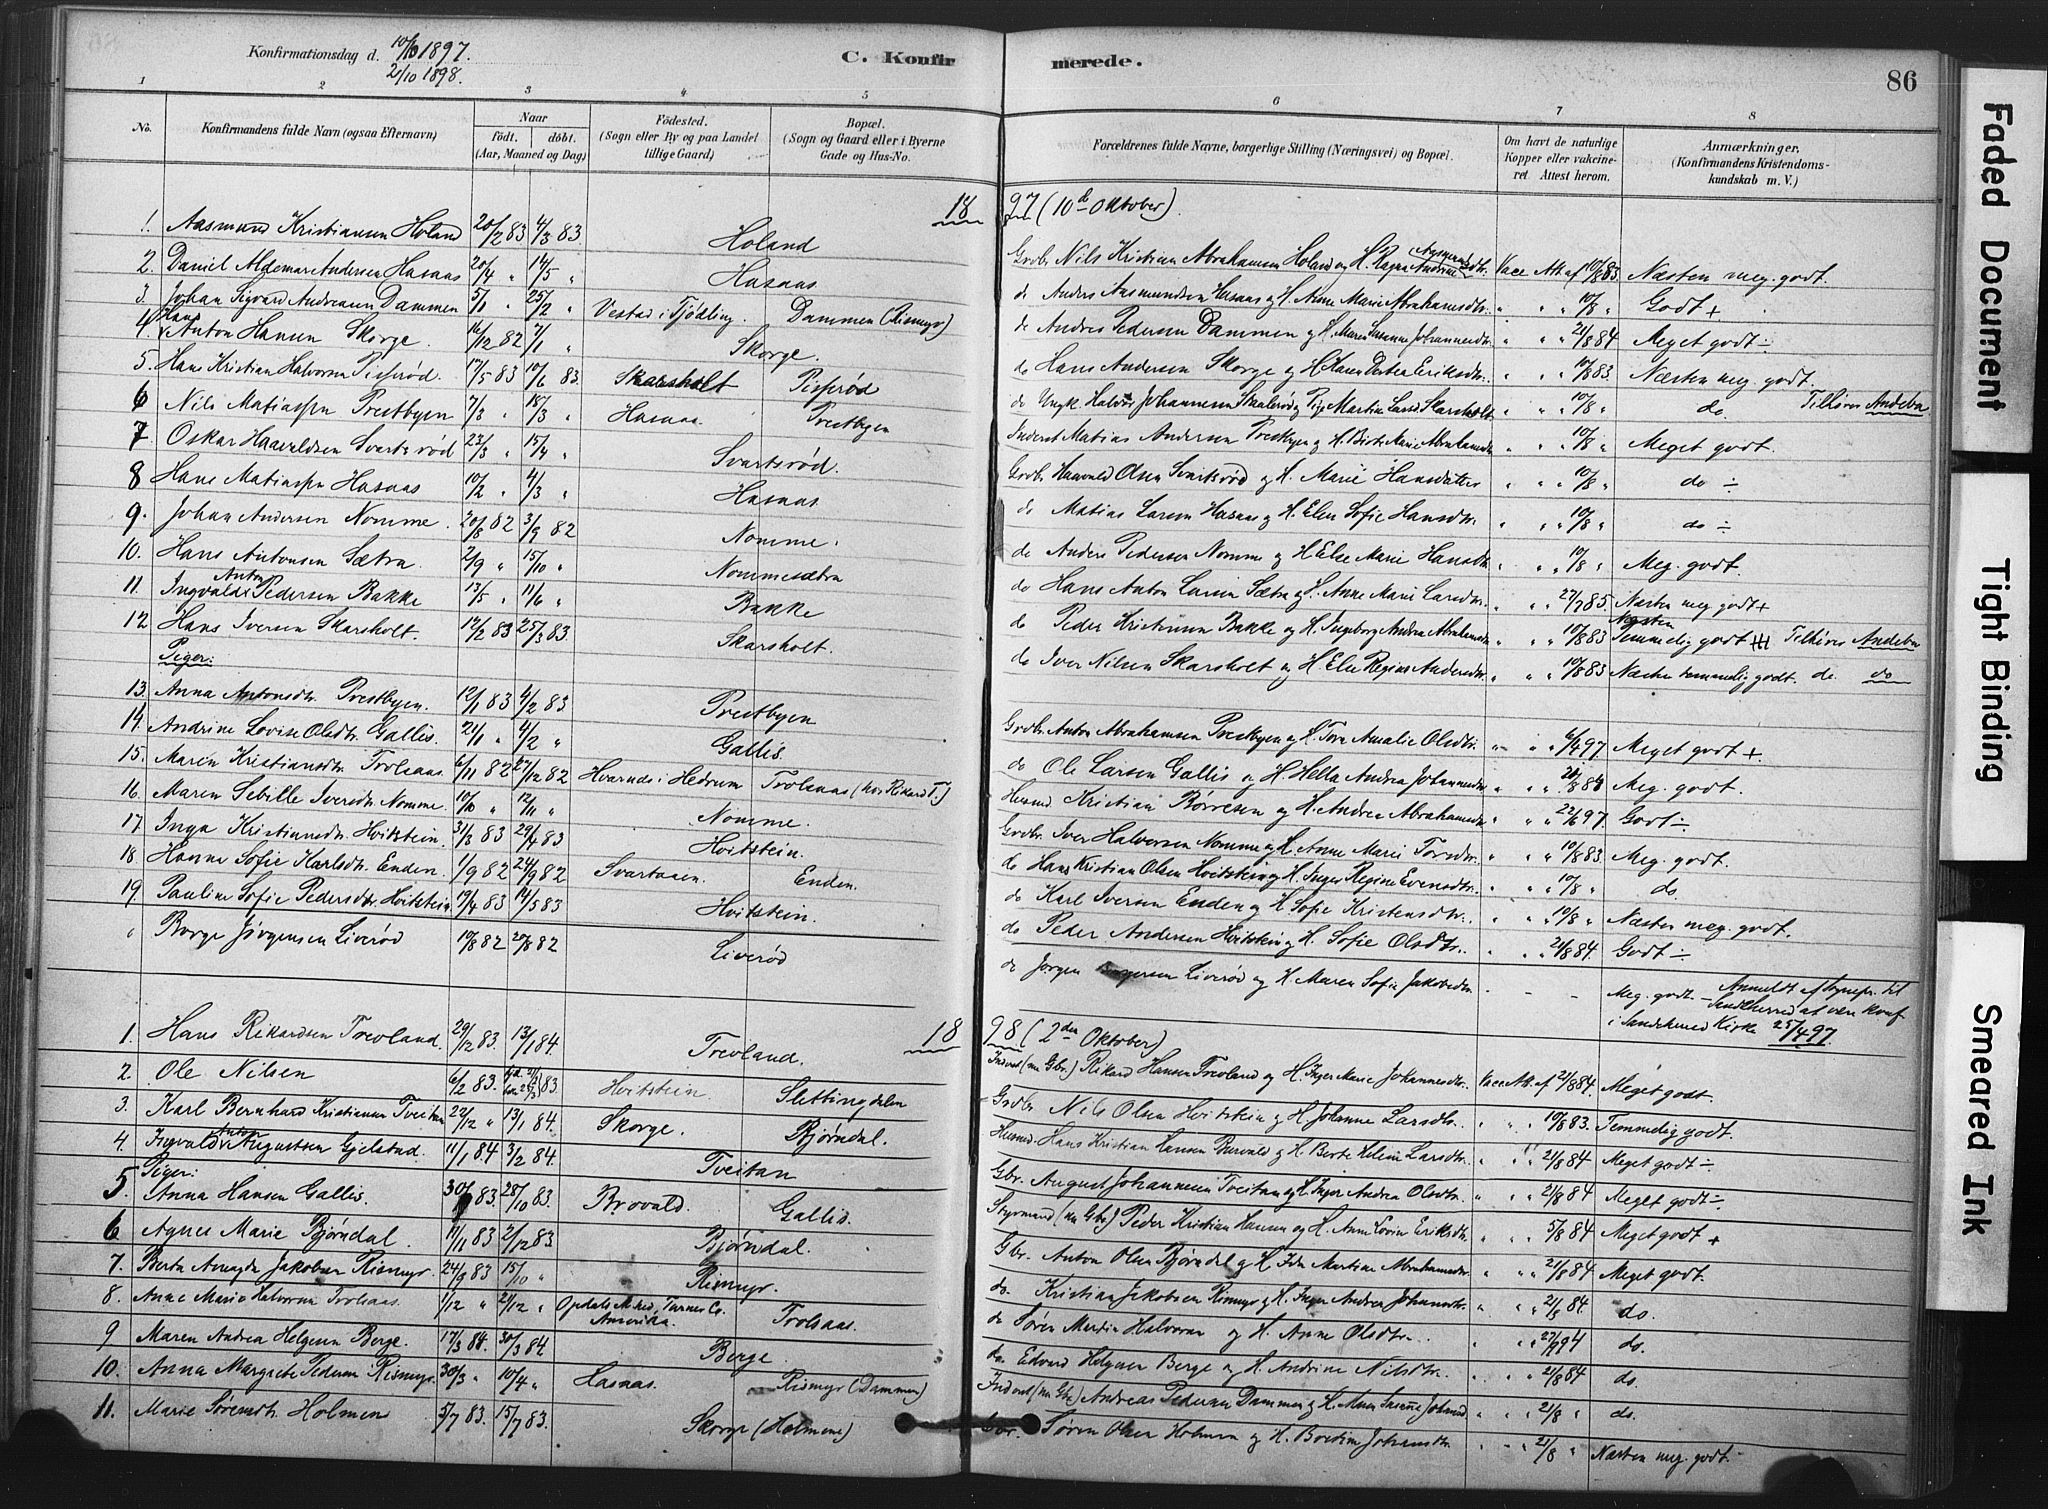 Konfirmationsdag d. 10/10 1897.
2/10 1898.
C. Konfirmerede.
86
1 2 3 4 5 6 7 8
No.
Konfirmandens fulde Navn (ogsaa Efternavn)
Naar
født. døbt.
(Aar, Maaned og Dag)
Fødested.
(Sogn eller By og paa Landet
tillige Gaard)
Bopæl.
(Sogn og Gaard eller i Byerne
Gade og Hus-No.
Forældrenes fulde Navne, borgerlige Stilling (Næringsvei) og Bopæl.
Om havt de naturlige
Kopper eller vakcine-
ret Attest herom.
Anmærkninger,
(Konfirmandens Kristendoms-
kundskab m. V.)
1897 (10de Oktober).
1. Aasmund Kristiansen Holand 20/2 83 4/3 83 Holand Grdbr. Nils Kristian Abrahamsen Holand og H. Vacc. Att. af 10/8 83. Næsten meg. godt.
2. Daniel Aldemar Andersen Hasaas 20/4 " 14/5 " Hasaas do Anders Aasmundsen Hasaas og H. Anne Marie Abrahamsdtr. " " " 10/8 " Godt +
3. Johan Sigvard Andreasen Dammen 5/1 " 25/2 " Vestad i Tjødling. Dammen (Rismyr) do Andres Pedersen Dammen og H. Maren Susanne Johannesdtr. " " " 21/8 84 Meget godt ÷
4. Hans Anton Hansen Skorge. 16/12 82 7/1 " Skorge. do Hans Andersen Skorge og H. Karen Dortea Eriksdtr. " " " 10/8 83. Næsten meg. godt.
5. Hans Kristian Halvorsen Pisserød. 17/5 83 10/6 83. Skarsholt Pisserød do Ungk. Halvor Johannesen Skalerød og Pige Martin Larsd. Skarsholt " " " 10/8 " do Tilhører Andebu
6 Nils Matiassen Prestbyen 7/3 " 18/3 " Hasaas. Prestbyen Inderst Matias Andersen Prestbyen og H. Berte Marie Abrahamsdtr. " " " 10/8 " Meget godt.
7 Oskar Haavaldsen Svartsrød 23/3 " 15/4 " Svartsrød. Grdbr. Haavald Olsen Svartsrød og H. Marie Hansdatter " " " 10/8 " do ÷
8 Hans Matiassen Hasaas 10/2 " 4/3 " Hasaas do Matias Larsen Hasaas og H. Elen Sofie Hansdtr. " " " 10/8 " do ÷
9. Johan Andersen Nomme. 20/8 82 3/9 82 Nomme. do Anders Pedersen Nomme og H. Else Marie Hansdtr. " " " 10/8 " Meg. godt.
10. Hans Antonsen Sætra. 2/9 " 15/10 " Nommesætra do Hans Anton Larsen Sætra og H. Anne Marie Larsdtr. " " " 27/7 85. Næsten meg. godt +
11. Ingvald Anton Pedersen Bakke 13/5 " 11/6 " Bakke do Peder Kristensen Bakke og H. Ingeborg Andrea Abrahamsdtr. " " " 10/8 83 Næsten Temmelig godt Tilhører Andebu
12 Hans Iversen Skarsholt. 12/2 83 25/3 83 Skarsholt. do Iver Nilsen Skarsholt og H. Else Regine Andersdtr. " " " 10/8 83 Næsten temmelig godt. do. do
Piger:
13. Anna Antonsdtr. Prestbyen. 12/1 83 4/2 83 Prestbyen Grdbr. Anton Abrahamsen Prestbyen og H. Tora Amalie Olsdtr. " " " 6/4 97. Meget godt +.
14. Andrine Lovise Olsdtr. Gallis. 21/1 " 4/2 " Gallis. do Ole Larsen Gallis og H. Hella Andrea Johannesdtr. " " " 20/8 84 Meg. godt.
15. Maren Kristiansdtr. Trolsaas. 6/11 82 27/12 82 Hvarnes i Hedrum Trolsaas (hos Rikard T.) Husmd Kristian Børresen og H. Andrea Abrahamsdtr. " " " 22/6 97. Godt ÷
16. Maren Sebille Iversdtr. Nomme. 10/10 " 12/11 " Nomme. Grdbr. Iver Halvorsen Nomme og H. Anne Marie Torsdtr. " " " 10/8 83. Meg. godt.
17. Inga Kristiansdtr. Hvitstein. 31/3 83 29/4 83 Hvitstein. do Hans Kristian Olsen Hvitstein og H. Inger Regine Evensdtr. " " " 10/8 " do
18. Hanne Sofie Karlsdtr. Enden. 1/9 82 24/9 82 Svartaaen. Enden. do Karl Iversen Enden og H. Sofie Kristensdtr. " " " 10/8 " Næsten meg. godt.
19. Pauline Sofie Pedersdtr. Hvitstein 19/4 83 14/5 83 Hvitstein. do Peder Andersen Hvitstein og H. Sofie Olsdtr. " " " 21/8 84. Godt ÷
" Borge Jørgensen Liverød 10/8 82 20/8 82 Liverød do Jørgen Liverød og H. Maren Sofie Jakobsdtr. - - - Meg. godt. - Anmeldt af sognepr. til
Sandeherred at være konf.
i Sandeherred Kirke 25/4 97
1898 (2den Oktober)
1. Hans Rikardsen Trevland. 29/12 83. 13/1 84. Trevland. Inderst (nu Gbr.) Rikard Hansen Trevland og H. Inger Marie Johannesdtr. Vacc. Att. af 21/8 84. Meget godt.
2. Ole Nilsen 6/2 83. 83 Hvitstein. Slettingdalen Grdbr. Nils Olsen Hvitstein og H. Johanne Larsdtr. " " " 10/8 83. Temmelig godt.
3. Karl Bernhard Kristiansen Tveitan 22/12 " 13/1 84. Skorge. Bjørndal. Husmd. Hans Kristian Hansen og H. Berte Helene Larsdtr. " " " 21/8 84 Meget godt ÷.
4. Ingvald Anton Augustsen Gjelstad. 11/1 84 3/2 84. Tveitan Gbr. August Johannesen Tveitan og H. Inger Andrea Olsdtr. " " " 21/8 84 Meget godt ÷
Piger:
5. Anna Hansen Gallis. 30/9 83. 28/10 83. Brovald. Gallis. Styrmand (nu Gbr) Peder Kristian Hansen og H. Anne Lovise Eriksdtr. " " " 5/8 84 Meget godt +
6 Agnes Marie Bjørndal. 11/11 83 2/12 83 Bjørndal. Gbr. Anton Olsen Bjørndal og H. Ida Martine Abrahamsdtr. " " " 21/8 84 Meget godt.
7. Berta Amagda Jakobsen Rismyr. 24/9 83 15/10 " Rismyr. do. Kristian Jakobsen Rismyr og H. Inger Andrea Johansdtr. " " " 21/8 84 do.
8. Anne Marie Halvorsen Trolsaas. 1/12 " 21/12 " Opdals M., Turner Co. Amerika. Trolsaas. do Søren Martin Halvorsen og H. Anne Olsdtr. " " " 27/9 94 do.
9 Maren Andrea Helgesen Berge. 17/3 84. 30/3 84 Berge. do. Edvard Helgesen Berge og H. Andrine Nilsdtr. " " " 21/8 84 do.
10. Anna Margrete Pedersen Rismyr. 30/3 " 10/4 " Hasaas. Rismyr (Dammen) Inderst (nu Gbr) Andreas Pedersen Dammen og H. Maren Susanne Johansd. " " " 21/8 " do.
11. Marie Sørensdtr. Holmen 5/7 83. 15/7 83. Skorge (Holmene) Gbr. Søren Olsen Holmen og H. Bredine Johansdtr. " " " 21/8 " Næsten meg. godt.
Faded Document
Tight Binding
Smeared Ink